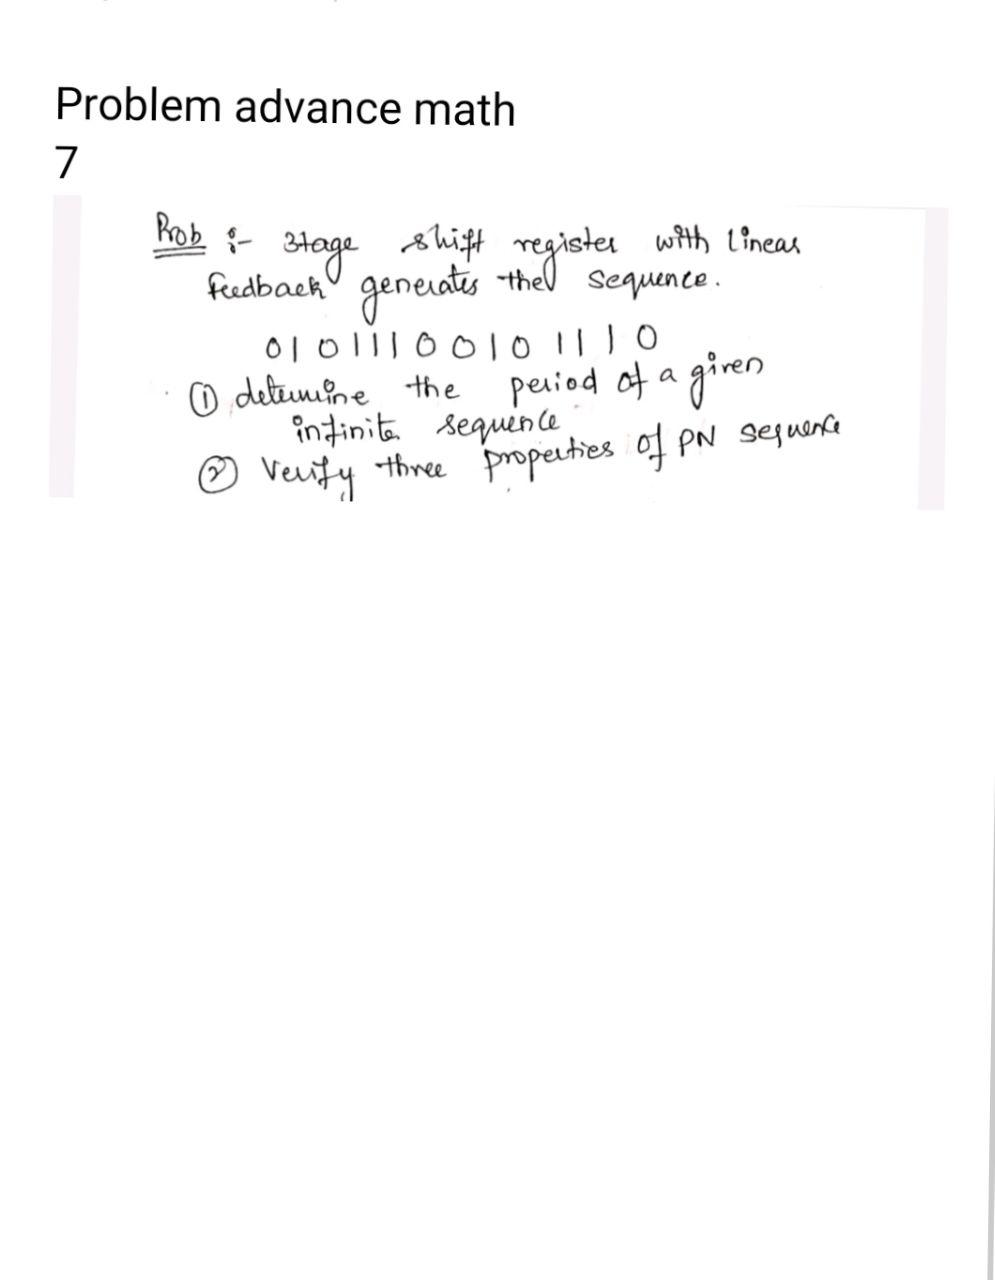 Problem advance math
7
Prob :- 3tage shift register with Linear
feedback generates the sequence.
010111001011110
① determine the period of a given
infinite sequence
② Verify three properties of PN sequence